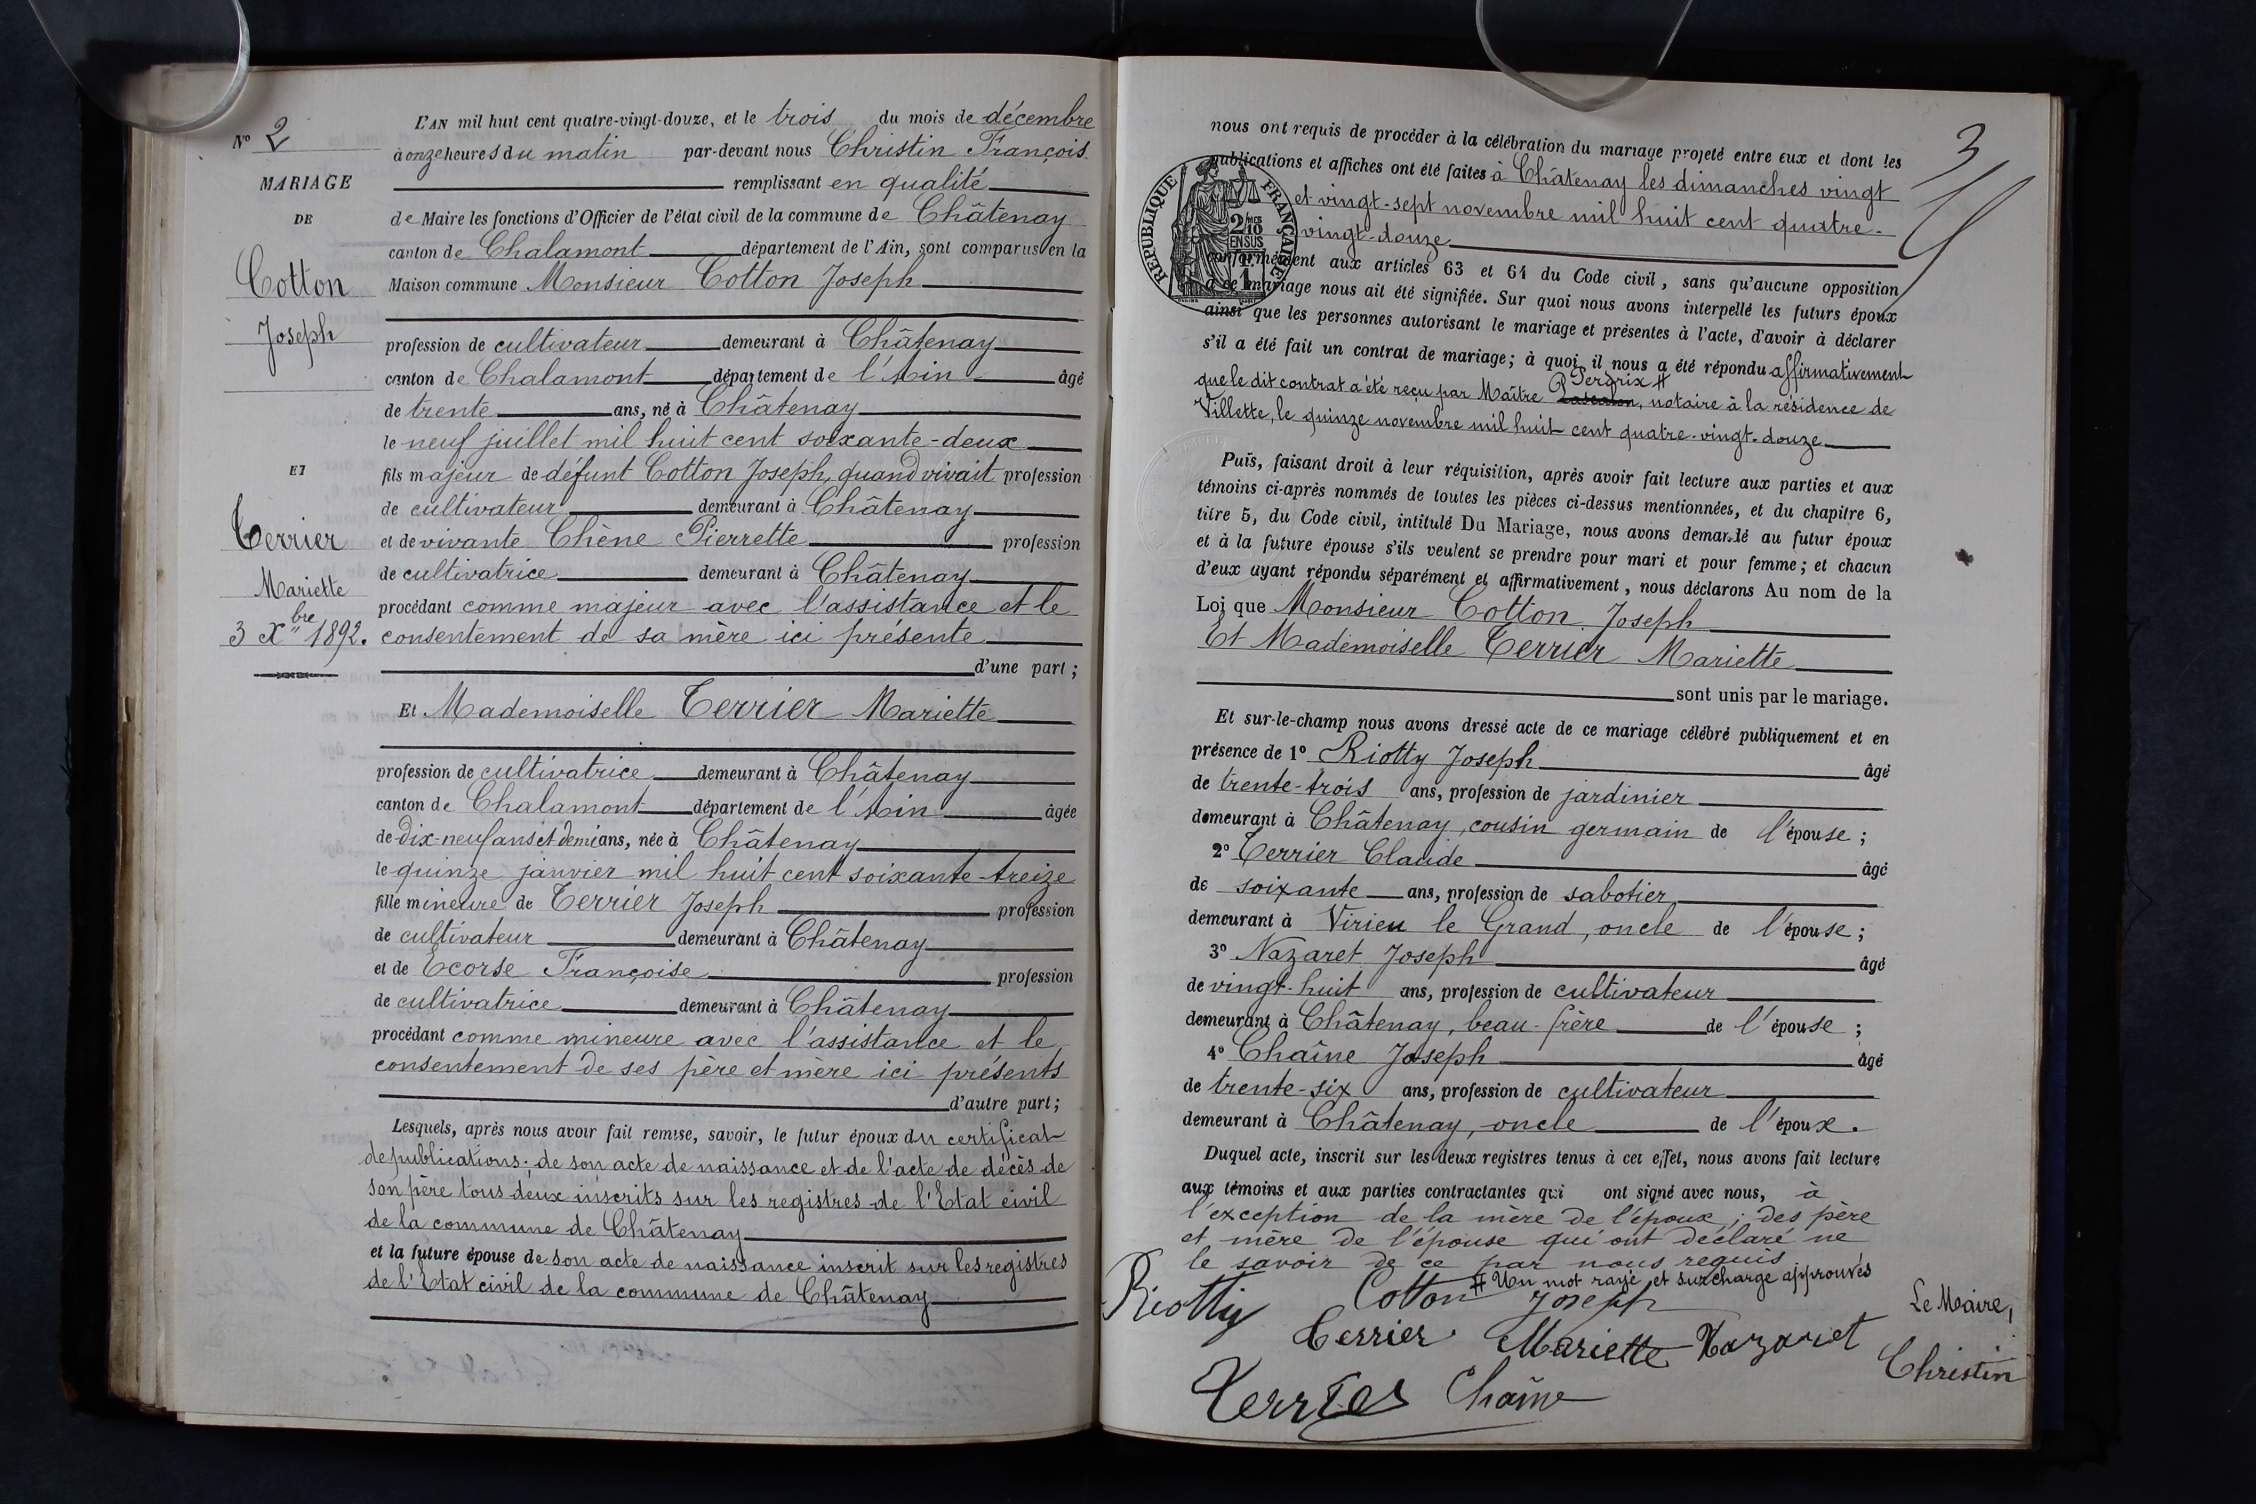 Nº 2
MARIAGE
DE
Cotton
Joseph
ET
Terrier
Mariette
3 Xbre 1892.
L'AN mil huit cent quatre-vingt-douze, et le trois du mois de décembre
à onze heures du matin par-devant nous Christin François
remplissant en qualité
de Maire les fonctions d'Officier de l'état civil de la commune de Châtenay
canton de Chalamont département de l'Ain, sont comparus en la
Maison commune Monsieur Cotton Joseph
profession de cultivateur demeurant à Châtenay
canton de Chalamont département de l'Ain âgé
de trente ans, né à Châtenay
le neuf juillet mil huit cent soixante-deux
fils majeur de défunt Cotton Joseph, quand vivait profession
de cultivateur demeurant à Châtenay
et de vivante Chêne Pierrette profession
de cultivatrice demeurant à Châtenay
procédant comme majeur avec l'assistance et le
consentement de sa mère ici présente
d'une part ;
Et Mademoiselle Terrier Mariette
profession de cultivatrice demeurant à Châtenay
canton de Chalamont département de l'Ain âgée
de dix-neuf ans et demi ans, née à Châtenay
le quinze janvier mil huit cent soixante-treize
fille mineure de Terrier Joseph profession
de cultivateur demeurant à Châtenay
et de Ecorse Françoise profession
de cultivatrice demeurant à Châtenay
procédant comme mineure avec l'assistance et le
consentement de ses père et mère ici présents
d'autre part ;
Lesquels, après nous avoir fait remise, savoir, le futur époux du certificat
de publications ; de son acte de naissance et de l'acte de décès de
son père tous deux inscrits sur les registres de l'Etat civil
de la commune de Châtenay
et la future épouse de son acte de naissance inscrit sur les registres
de l'Etat civil de la commune de Châtenay
3
nous ont requis de procéder à la célébration du mariage projeté entre eux et dont les
publications et affiches ont été faites à Châtenay les dimanches vingt
et vingt-sept novembre mil huit cent quatre-
vingt-douze
RÉPUBLIQUE FRANÇAISE
2/10 EN SUS
conformément aux articles 63 et 64 du Code civil, sans qu'aucune opposition
à ce mariage nous ait été signifiée. Sur quoi nous avons interpellé les futurs époux
ainsi que les personnes autorisant le mariage et présentes à l'acte, d'avoir à déclarer
s'il a été fait un contrat de mariage ; à quoi il nous a été répondu affirmativement
que le dit contrat a été reçu par Maître Perdrix #, notaire à la résidence de
Villette, le quinze novembre mil huit cent quatre-vingt-douze
Puis, faisant droit à leur réquisition, après avoir fait lecture aux parties et aux
témoins ci-après nommés de toutes les pièces ci-dessus mentionnées, et du chapitre 6,
titre 5, du Code civil, intitulé Du Mariage, nous avons demandé au futur époux
et à la future épouse s'ils veulent se prendre pour mari et pour femme ; et chacun
d'eux ayant répondu séparément et affirmativement, nous déclarons Au nom de la
Loi que Monsieur Cotton Joseph
Et Mademoiselle Terrier Mariette
sont unis par le mariage.
Et sur-le-champ nous avons dressé acte de ce mariage célébré publiquement et en
présence de 1º Riotty Joseph âgé
de trente-trois ans, profession de jardinier
demeurant à Châtenay, cousin germain de l'épouse ;
2º Terrier Claude âgé
de soixante ans, profession de sabotier
demeurant à Virieu le Grand, oncle de l'épouse ;
3º Nazaret Joseph âgé
de vingt-huit ans, profession de cultivateur
demeurant à Châtenay, beau-frère de l'épouse ;
4º Chaîne Joseph âgé
de trente-six ans, profession de cultivateur
demeurant à Châtenay, oncle de l'époux.
Duquel acte, inscrit sur les deux registres tenus à cet effet, nous avons fait lecture
aux témoins et aux parties contractantes qui ont signé avec nous, à
l'exception de la mère de l'époux ; des père
et mère de l'épouse qui ont déclaré ne
le savoir de ce par nous requis
# Un mot rayé et surchargé approuvés
Riotty Cotton Joseph Le Maire,
Terrier Mariette Nazaret Christin
Terrier Chaîne